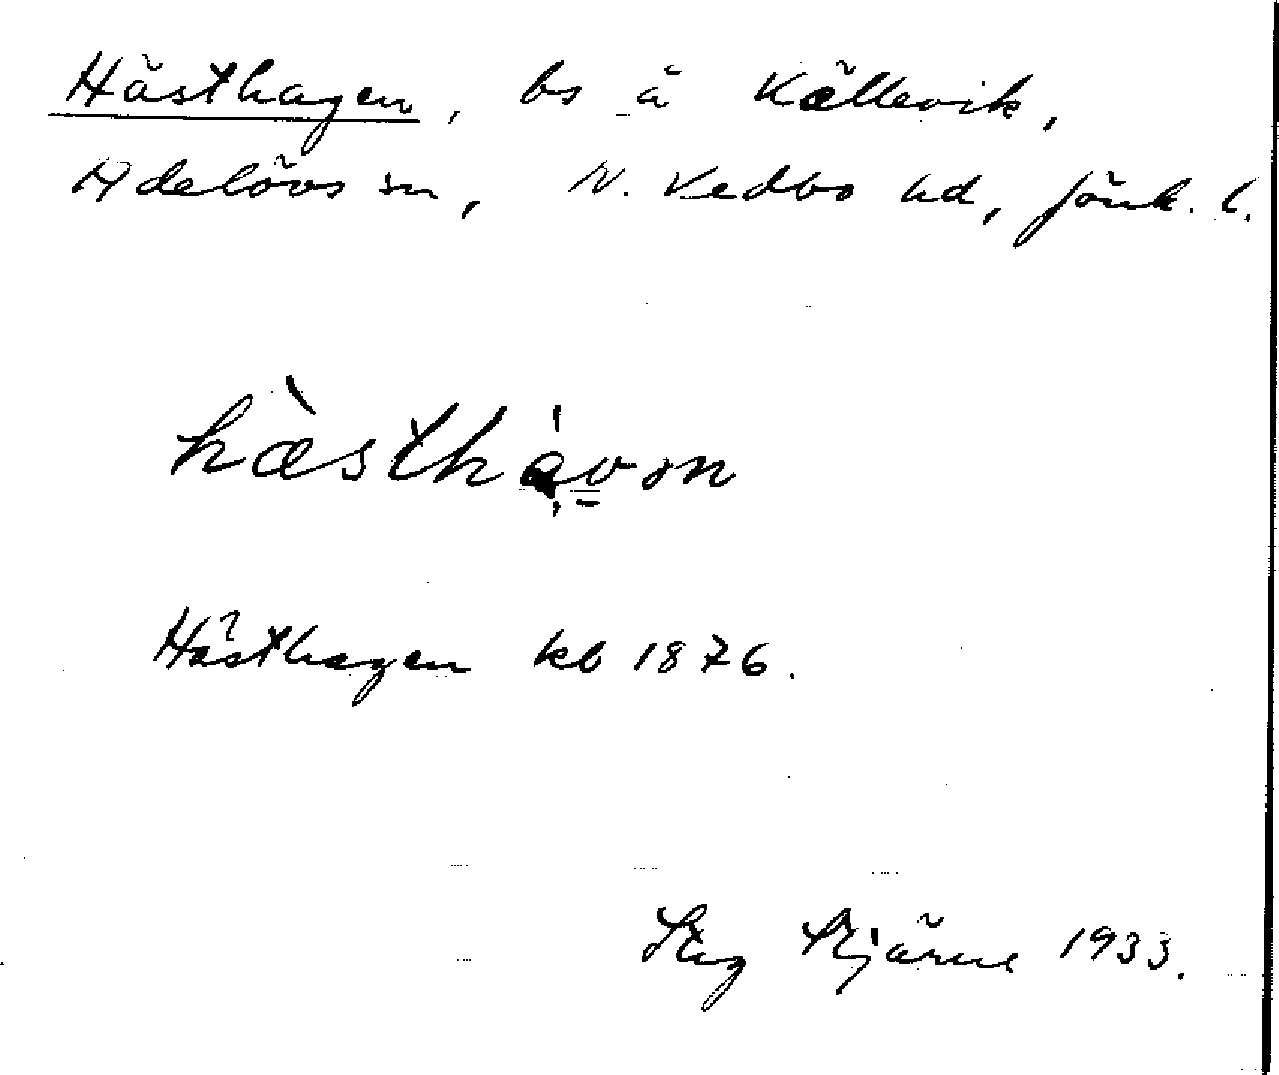 Hästhagen, bs å Källevik,
Adelövs sn, N. Vedbo hd, Jönk. l.
hæ̀sthàvən
Hästhagen kb 1876.
Stig Stjärne 1933.